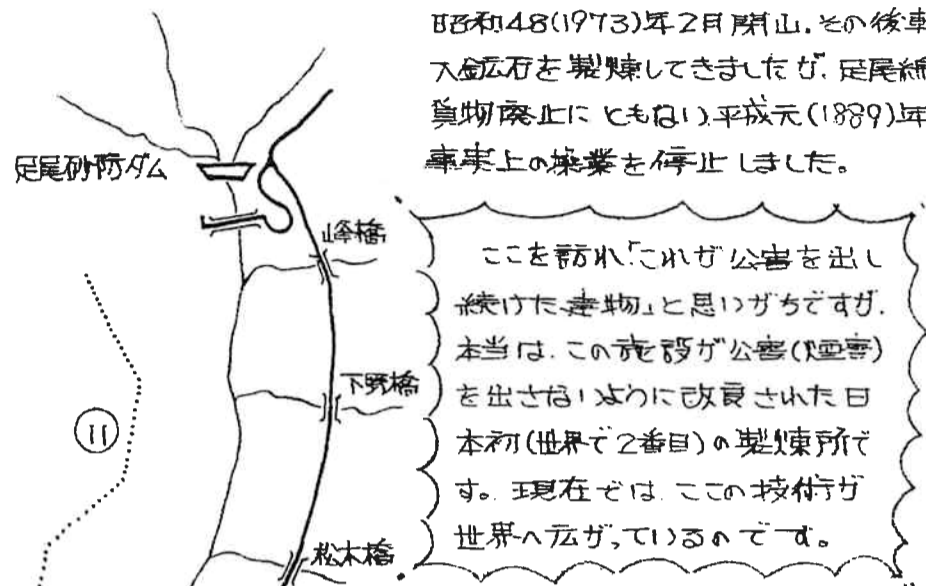 昭和48(1973)年2月閉山.その後車
入鉱石を製煉してきましたが.足尾線
貨物廃止にともない.平成元(1889)年
事実上の操業を停止しました。
足尾砂防ダム
峰橋
ここを訪れ「これが公害を出し
続けた建物」と思いがちですが.
本当は.この施設が公害(煙害)
を出さないように改良された日
本初(世界で2番目)の製煉所で
す。現在では.ここの技術が
世界へ広がっているのです。
下野橋
11
松木橋